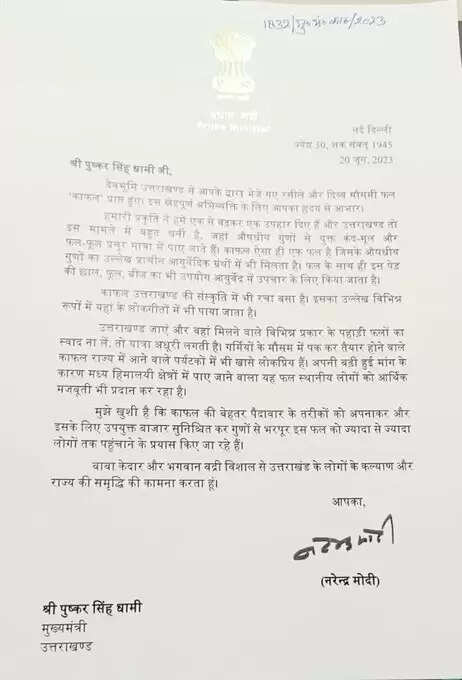 1832/
प्रधान मंत्री
Prime Minister
नई दिल्ली
ज्येष्ठ 30, शक संवत् 1945
20 जून, 2023
श्री पुष्कर सिंह धामी जी,
देवभूमि उत्तराखण्ड से आपके द्वारा भेजे गए रसीले और दिव्य मौसमी फल
'काफल' प्राप्त हुए। इस स्नेहपूर्ण अभिव्यक्ति के लिए आपका हृदय से आभार।
हमारी प्रकृति ने हमें एक से बढ़कर एक उपहार दिए हैं और उत्तराखण्ड तो
इस मामले में बहुत धनी है, जहां औषधीय गुणों से युक्त कंद-मूल और
फल-फूल प्रचुर मात्रा में पाए जाते हैं। काफल ऐसा ही एक फल है जिसके औषधीय
गुणों का उल्लेख प्राचीन आयुर्वेदिक ग्रंथों में भी मिलता है। फल के साथ ही इस पेड़
की छाल, फूल, बीज का भी उपयोग आयुर्वेद में उपचार के लिए किया जाता है।
काफल उत्तराखण्ड की संस्कृति में भी रचा बसा है। इसका उल्लेख विभिन्न
रूपों में यहां के लोकगीतों में भी पाया जाता है।
उत्तराखण्ड जाएं और वहां मिलने वाले विभिन्न प्रकार के पहाड़ी फलों का
स्वाद ना लें, तो यात्रा अधूरी लगती है। गर्मियों के मौसम में पक कर तैयार होने वाले
काफल राज्य में आने वाले पर्यटकों में भी खासे लोकप्रिय हैं। अपनी बढ़ी हुई मांग के
कारण मध्य हिमालयी क्षेत्रों में पाए जाने वाला यह फल स्थानीय लोगों को आर्थिक
मजबूती भी प्रदान कर रहा है।
मुझे खुशी है कि काफल की बेहतर पैदावार के तरीकों को अपनाकर और
इसके लिए उपयुक्त बाजार सुनिश्चित कर गुणों से भरपूर इस फल को ज्यादा से ज्यादा
लोगों तक पहुंचाने के प्रयास किए जा रहे हैं।
बाबा केदार और भगवान बद्री विशाल से उत्तराखंड के लोगों के कल्याण और
राज्य की समृद्धि की कामना करता हूं।
आपका,
नरेन्द्र मोदी
(नरेन्द्र मोदी)
श्री पुष्कर सिंह धामी
मुख्यमंत्री
उत्तराखण्ड